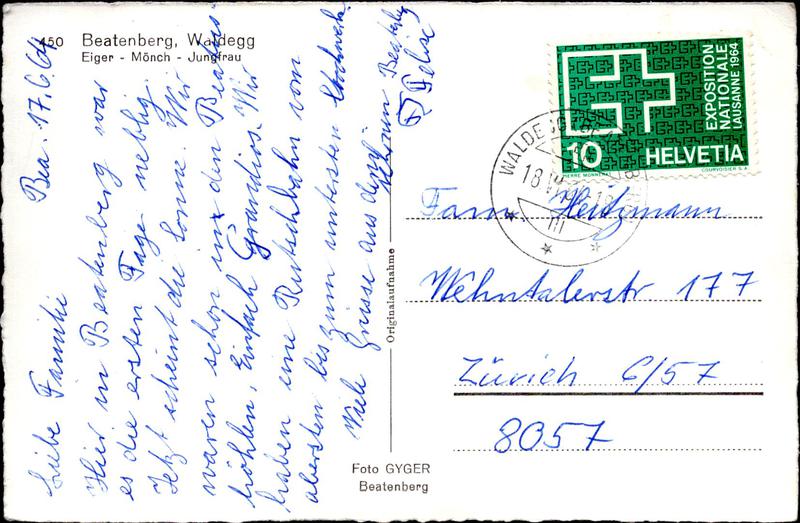 450 Beatenberg, Waldegg
Eiger - Mönch - Jungfrau
Bea. 17.6.64
Liebe Familie
Hier in Beatenberg war
es die ersten Tage neblig.
Jetzt scheint die Sonne. Wir
waren schon in den Beatus-
höhlen. Einfach Grandios. Wir
haben eine Rutschbahn vom
obersten bis zum untersten Stockwerk.
Viele Grüsse aus dem
Beatenberg
Felix
Originalaufnahme
Foto GYGER
Beatenberg
EXPOSITION
NATIONALE
LAUSANNE 1964
10 HELVETIA
PIERRE MONNERAT
COURVOISIER S.A.
WALDEGG
18.VI.
Fam. Heitzmann
Wehntalerstr 177
Zürich 6/57
8057